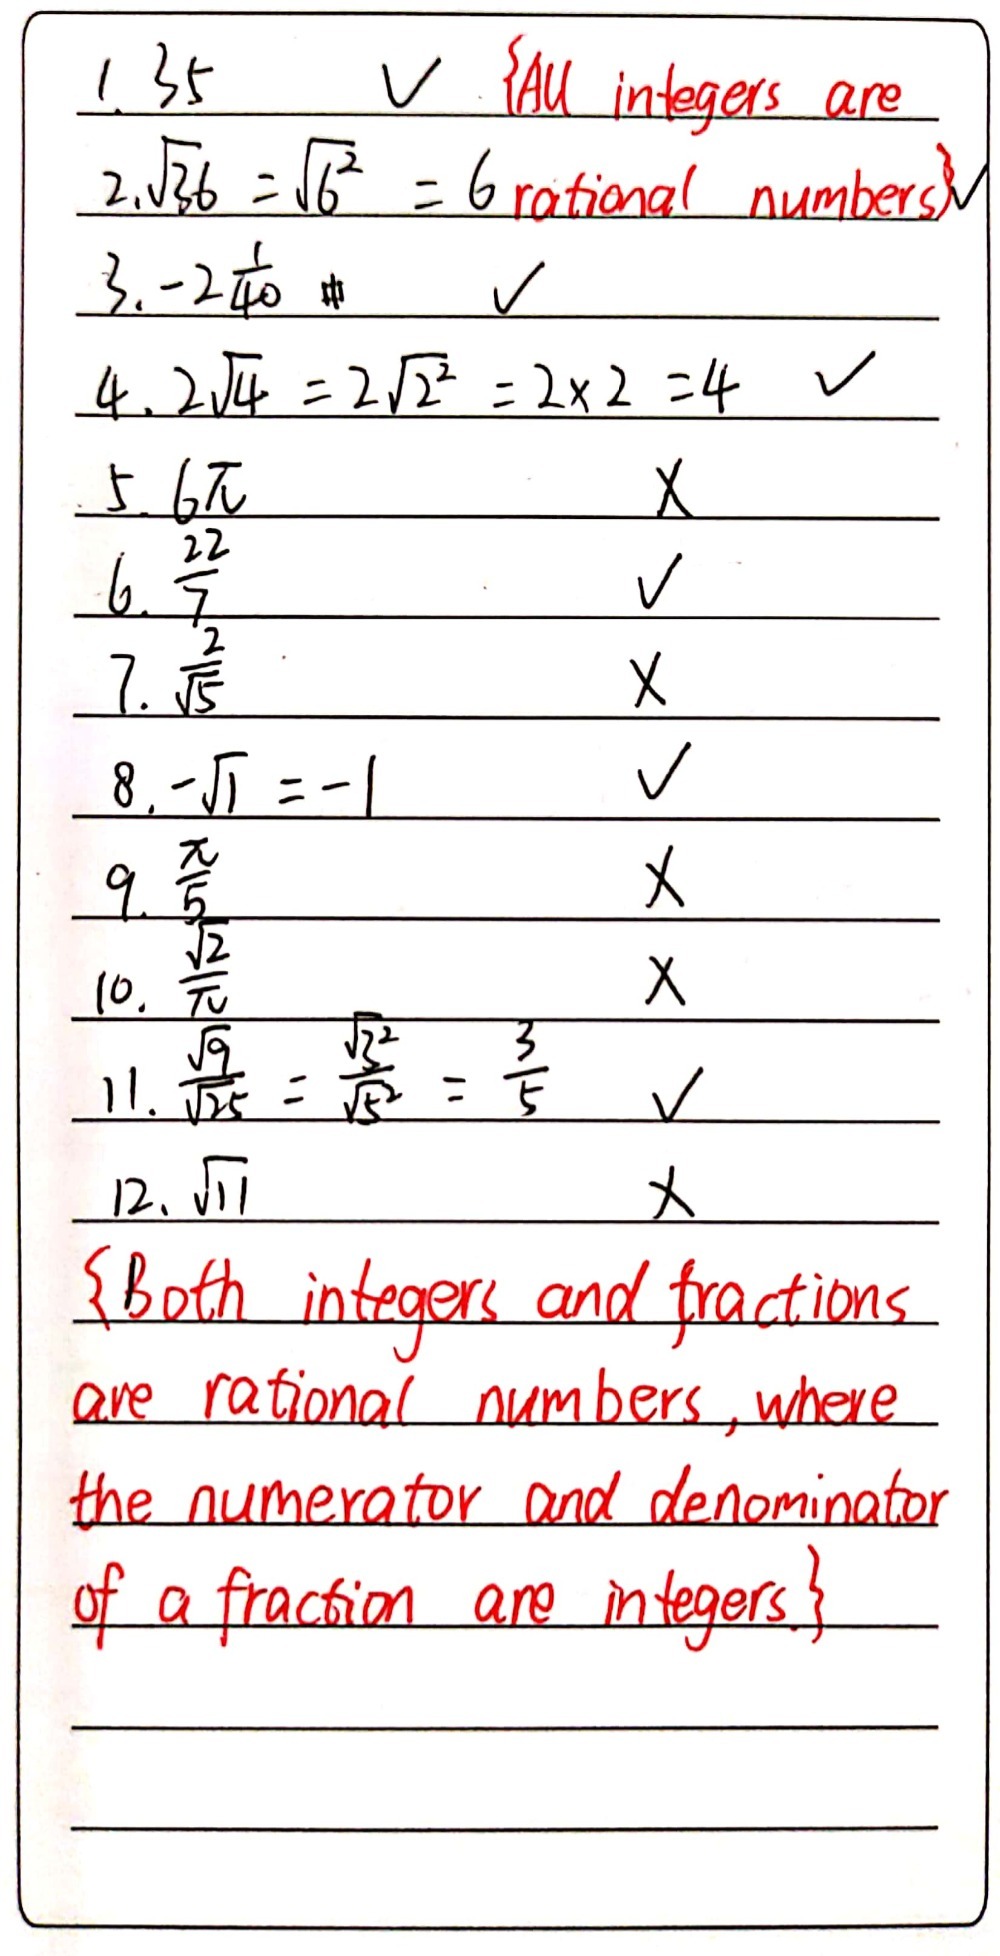 1. 35 ✓ {All integers are
2. √36 = √6² = 6 rational numbers} ✓
3. -2 1/40 ✓
4. 2√4 = 2√2² = 2×2 = 4 ✓
5. 6π ✗
6. 22/7 ✓
7. 2/√5 ✗
8. -√1 = -1 ✓
9. π/5 ✗
10. √2/π ✗
11. √9/√25 = √3²/√5² = 3/5 ✓
12. √11 ✗
{Both integers and fractions
are rational numbers, where
the numerator and denominator
of a fraction are integers.}